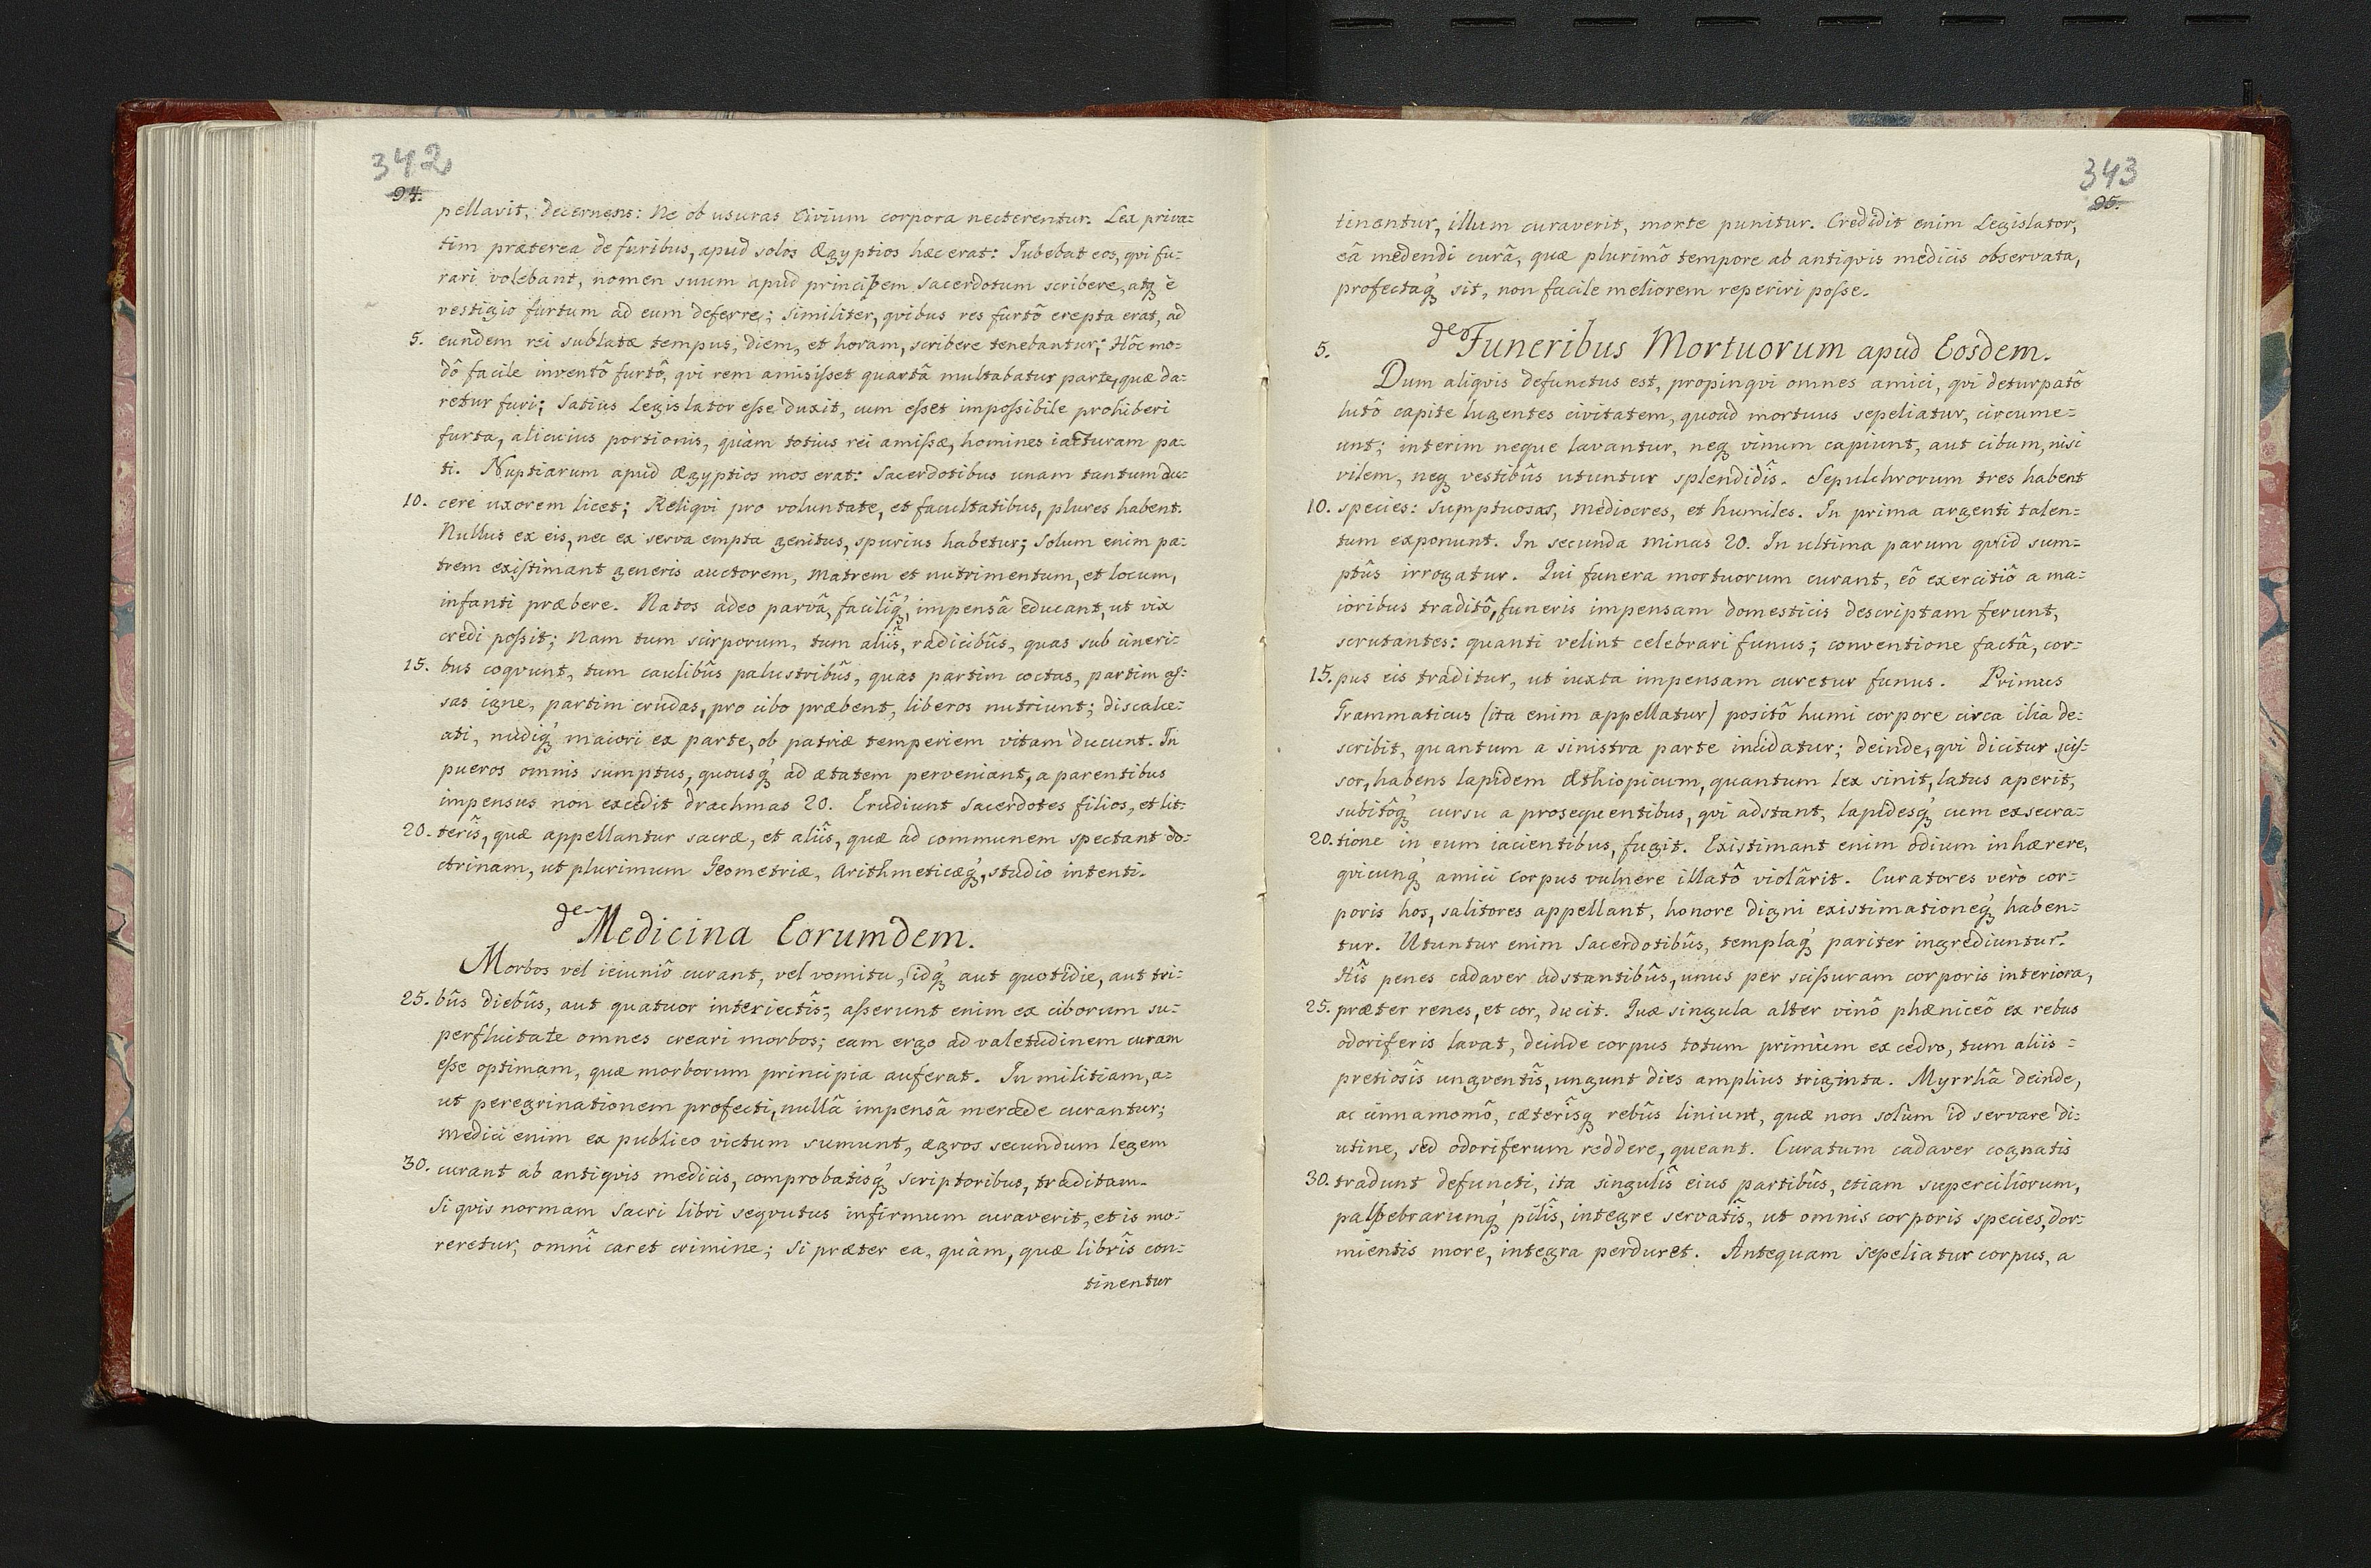 342
94.
pellavit, decernens: Ne ob usuras Civium corpora necterentur. Lex priva=
tim præterea de furibus, apud solos Ægyptios hæc erat: Iubebat eos, qvi fu=
rari volebant, nomen suum apud principem Sacerdotum scribere, atq́ è
vestigio furtum ad eum deferre; similiter, qvibus res furtô erepta erat, ad
5. eundem rei sublatæ tempus, diem, et horam, scribere tenebantur; Hôc mo=
dô facile inventô furtô, qvi rem amisißet quartâ multabatur parte, quæ da=
retur furi; Satius Legislator eße duxit, cum eßet impoßibile prohiberi
furta, alicuius portionis, quàm totius rei amißæ, homines iacturam pa=
ti. Nuptiarum apud Ægyptios mos erat: Sacerdotibus unam tantum du=
10. cere uxorem licet; Reliqvi pro voluntate, et facultatibus, plures habent.
Nullus ex eis, nec ex serva empta genitus, spurius habetur; Solum enim pa=
trem existimant generis auctorem, Matrem et nutrimentum, et locum,
infanti præbere. Natos adeo parvâ, faciliq́, impensâ educant, ut vix
credi poßit; Nam tum scirporum, tum aliîs, radicibûs, quas sub cineri=
15. bus coqvunt, tum caulibûs palustribûs, quas partim coctas, partim aß=
sas igne, partim crudas, pro cibo præbent, liberos nutriunt; discalce=
ati, nudiq́ maiori ex parte, ob patriæ temperiem vitam ducunt. In
pueros omnis sumptus, quousq́ ad ætatem perveniant, a parentibus
impensus non excedit drachmas 20. Erudiunt Sacerdotes filios, et lit=
20. terîs, quæ appellantur sacræ, et aliîs, quæ ad communem spectant do=
ctrinam, ut plurimum Geometriæ, Arithmeticæq́, studio intenti.
de Medicina Eorumdem.
Morbos vel ieiuniô curant, vel vomitu, idq́ aut quotidie, aut tri=
25. bûs diebûs, aut quatuor interiectîs; aßerunt enim ex ciborum su=
perfluitate omnes creari morbos; eam ergo ad valetudinem curam
eße optimam, quæ morborum principia auferat. In militiam, a=
ut peregrinationem profecti, nullâ impensâ mercede curantur;
medici enim ex publico victum sumunt, ægros secundum legem
30. curant ab antiqvis medicis, comprobatisq́ scriptoribus, traditam.
Si qvis normam Sacri libri seqvutus infirmum curaverit, et is mo=
reretur, omnî caret crimine; Si præter ea, quàm, quæ librîs con=
tinentur
343
95.
tinentur, illum curaverit, morte punitur. Credidit enim Legislator,
eâ medendi curâ, quæ plurimô tempore ab antiqvis medicis observata,
profectaq́ sit, non facile meliorem reperiri poße.
5. de Funeribus Mortuorum apud Eosdem.
Dum aliqvis defunctus est, propinqvi omnes amici, qvi deturpatô
lutô capite lugentes civitatem, quoad mortuus sepeliatur, circume=
unt; interim neque lavantur, neq vinum capiunt, aut cibum, nisi
vilem, neq vestibûs utuntur splendidîs. Sepulchrorum tres habent
10. species: sumptuosas, mediocres, et humiles. In prima argenti talen=
tum exponunt. In secunda minas 20. In ultima parum quid sum=
ptûs irrogatur. Qui funera mortuorum curant, eô exercitiô a ma=
ioribus traditô, funeris impensam domesticis descriptam ferunt,
scrutantes: quanti velint celebrari funus; conventione factâ, cor=
15. pus eis traditur, ut iuxta impensam curetur funus. Primus
Grammaticus (ita enim appellatur) positô humi corpore circa ilia de=
scribit, quantum a sinistra parte incidatur; deinde, qvi dicitur scis=
sor, habens lapidem Æthiopicum, quantum lex sinit, latus aperit,
subitôq́ cursu a prosequentibus, qvi adstant, lapidesq́ cum exsecra=
20. tione in eum iacientibus, fugit. Existimant enim odium inhærere,
qvicunq́ amici corpus vulnere illatô violârit. Curatores verò cor=
poris hos, salitores appellant, honore digni existimationeq́ haben=
tur. Utuntur enim Sacerdotibûs, templaq́ pariter ingrediuntur.
Hîs penes cadaver adstantibûs, unus per scißuram corporis interiora,
25. præter renes, et cor, ducit. Quæ singula alter vinô phæniceô ex rebus
odoriferis lavat, deinde corpus totum primùm ex cedro, tum aliis =
pretiosîs ungventîs, ungunt dies amplius triginta. Myrrhâ deinde,
ac cinnamomô, cæterîsq rebûs liniunt, quæ non solùm id servare di=
utine, sed odoriferum reddere, queant. Curatum cadaver cognatis
30. tradunt defuncti, ita singulîs eius partibûs, etiam superciliorum,
palpebrarumq́ pilîs, integre servatîs, ut omnis corporis species, dor=
mientis more, integra perduret. Antequam sepeliatur corpus, a